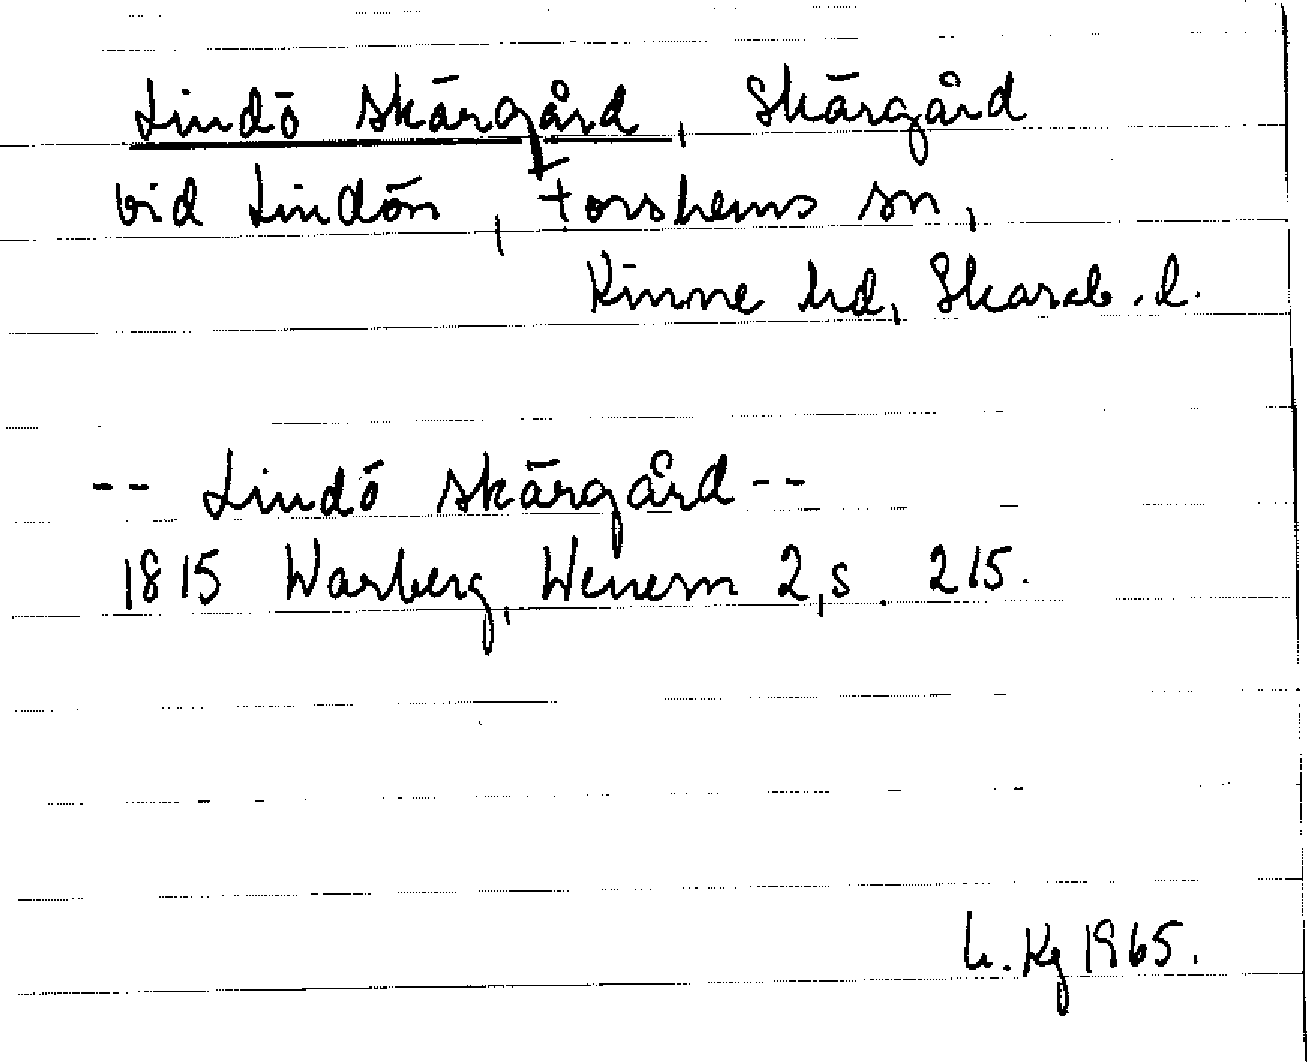 Lindö skärgård, Skärgård
vid Lindön, Forshems sn,
Kinne hd, Skarab. l.
-- Lindö skärgård --
1815 Warberg, Wenern 2, s. 215.
h. Kg 1965.